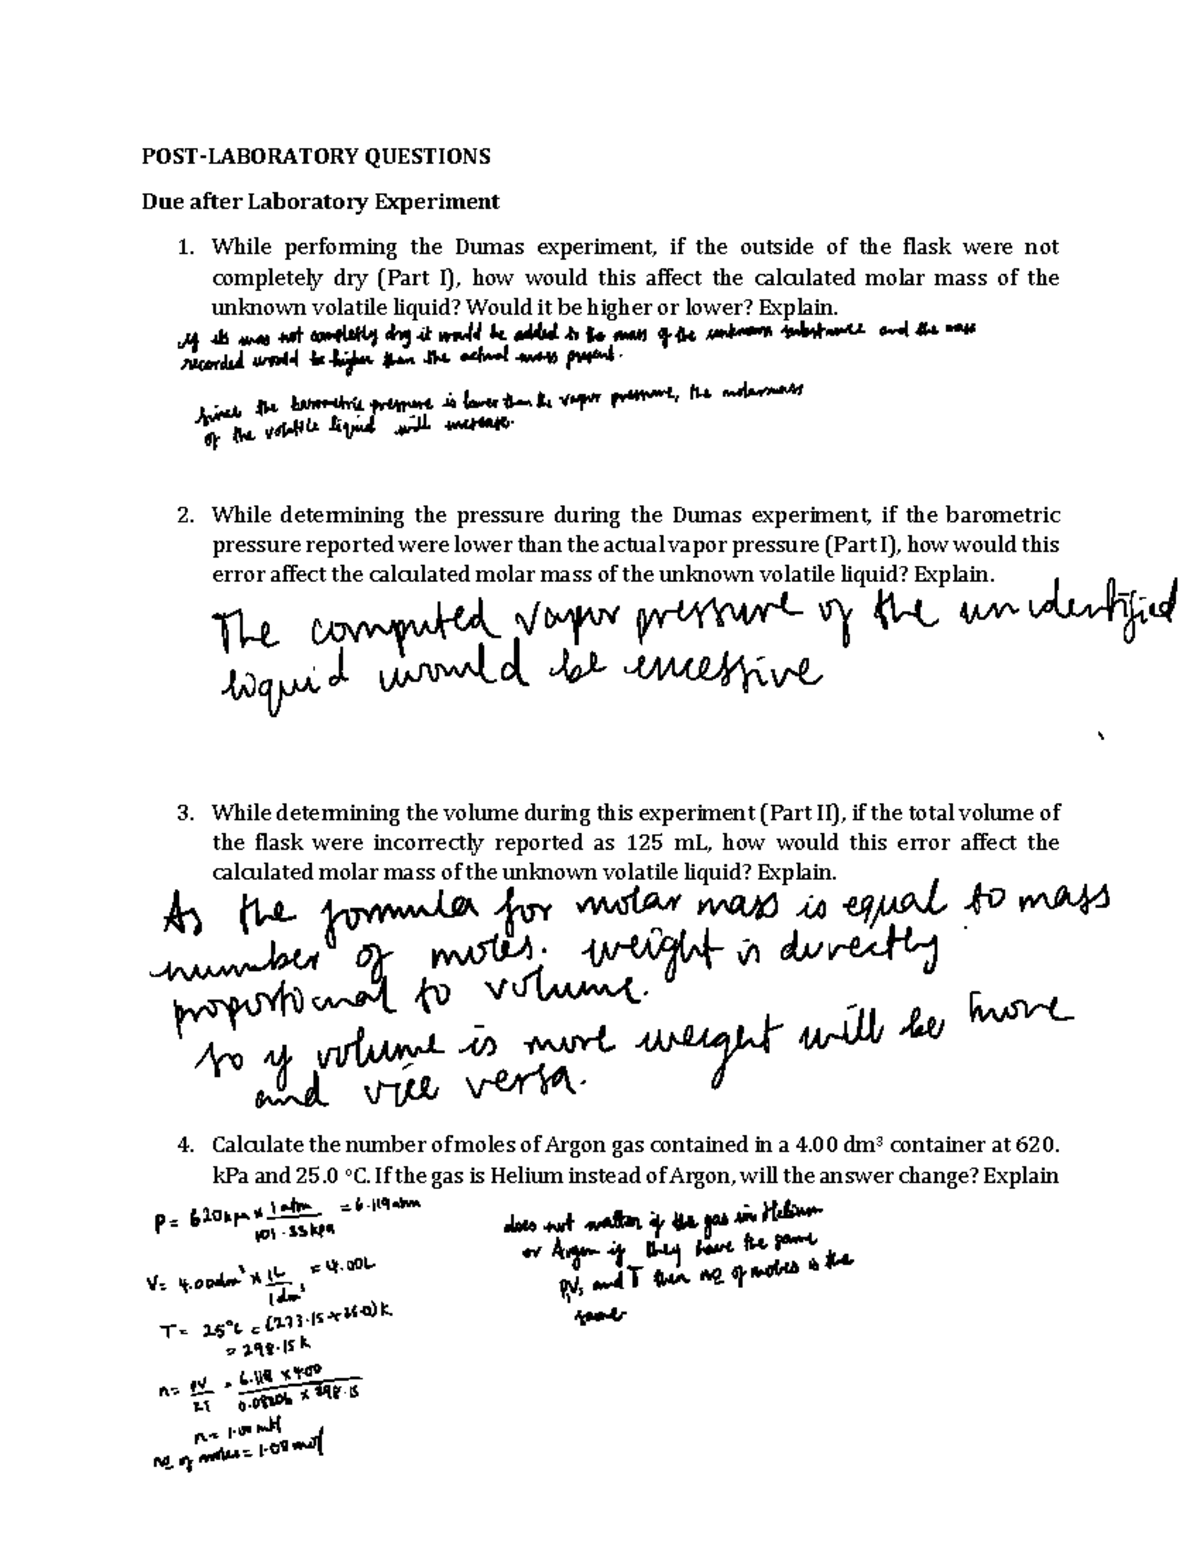 POST-LABORATORY QUESTIONS
Due after Laboratory Experiment
1. While performing the Dumas experiment, if the outside of the flask were not
completely dry (Part I), how would this affect the calculated molar mass of the
unknown volatile liquid? Would it be higher or lower? Explain.
If its was not completly dry it would be added to the mass of the unknown substance and the mass
recorded would be higher than the actual mass present.
Since the barometric pressure is lower than the vapor pressure, the molarmass
of the volatile liquid will increase.
2. While determining the pressure during the Dumas experiment, if the barometric
pressure reported were lower than the actual vapor pressure (Part I), how would this
error affect the calculated molar mass of the unknown volatile liquid? Explain.
The computed vapor pressure of the unidentified
liquid would be excessive
3. While determining the volume during this experiment (Part II), if the total volume of
the flask were incorrectly reported as 125 mL, how would this error affect the
calculated molar mass of the unknown volatile liquid? Explain.
As the formula for molar mass is equal to mass
number of moles. weight is directly
proportional to volume.
so if volume is more weight will be more
and vice versa.
4. Calculate the number of moles of Argon gas contained in a 4.00 dm³ container at 620.
kPa and 25.0 °C. If the gas is Helium instead of Argon, will the answer change? Explain
P = 620kpa × 1 atm / 101.33kpa = 6.119atm
V = 4.00dm³ × 1L / 1dm³ = 4.00L
T = 25°C = (273.15 + 25.0) K
= 298.15 K
n = PV / RT = 6.119 × 4.00 / 0.08206 × 298.15
n =
no of moles = 1.00 mol
does not matter if the gas is Helium
or Argon if they have the same
P, V, and T then no of moles is the
same